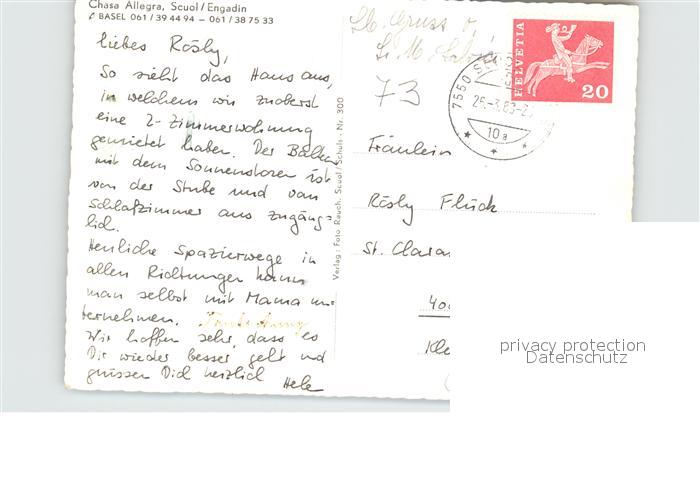 Chasa Allegra, Scuol/Engadin
BASEL 061/39 44 94 – 061/38 75 33
liebes Rösly,
So sieht das Haus aus,
in welchem wir zuoberst
eine 2-Zimmerwohnung
gemietet haben. Der Balkon
mit dem Sonnenstoren ist
von der Stube und vom
Schlafzimmer aus zugäng=
lich.
Herrliche Spazierwege in
allen Richtungen kann
man selbst mit Mama un-
ternehmen. Tante Anny
Wir hoffen sehr, dass es
Dir wieder besser geht und
grüssen Dich herzlich
Verlag: Foto Rauch, Scuol/Schuls - Nr. 300
Lb. Gruss
73
HELVETIA
20
7550
10a
Fräulein
Rösly Flück
St. Claran
privacy protection
Datenschutz